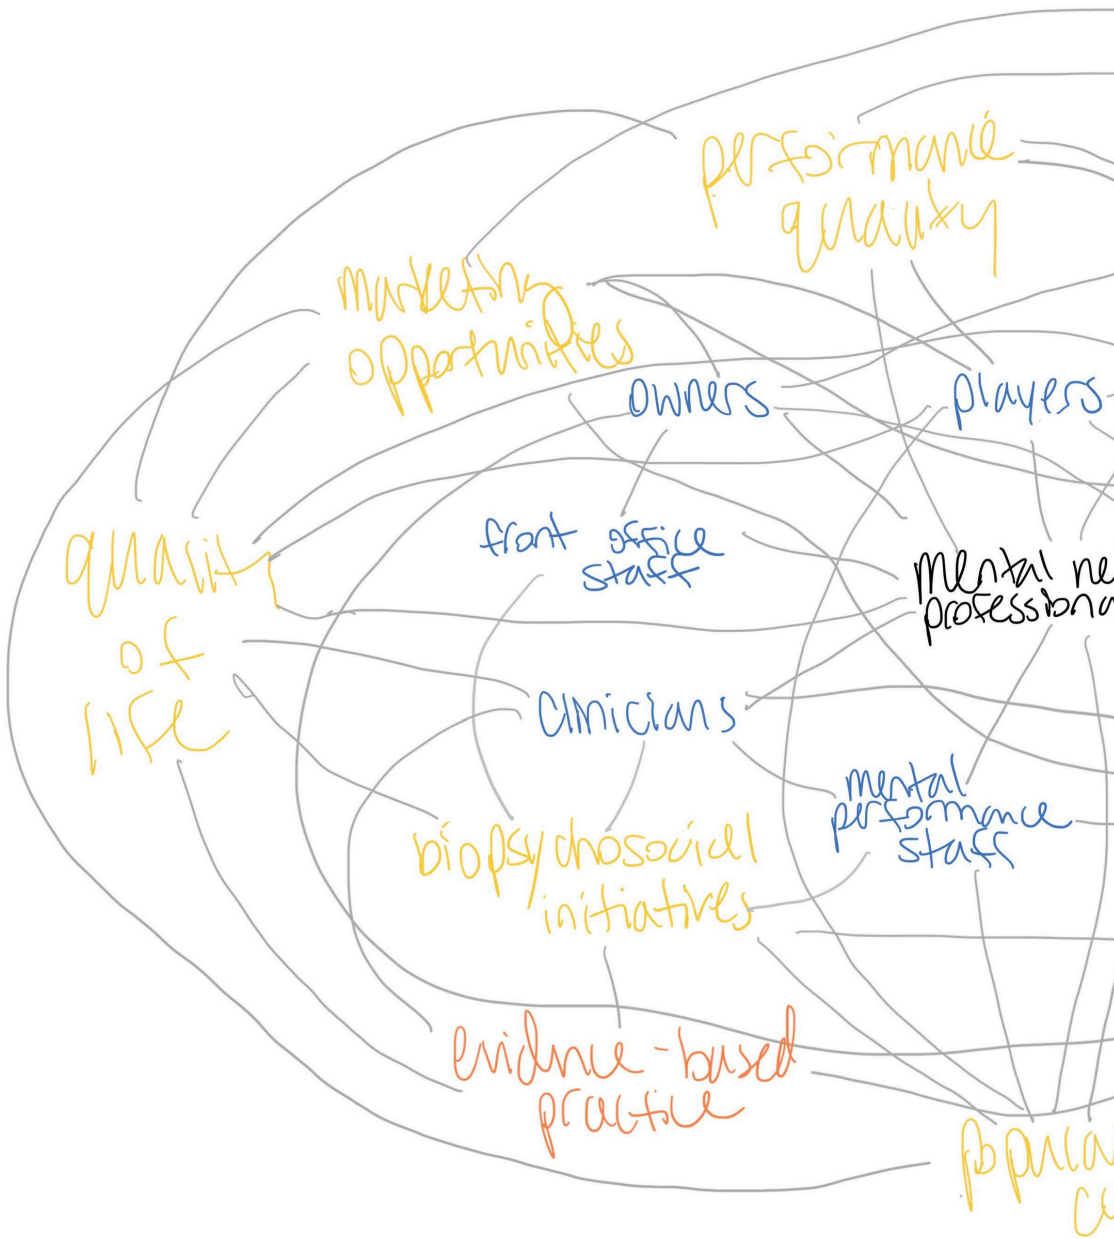 performance
quality
marketing
opportunities
owners
players
front office
staff
quality
of
life
mental
professiona
clinicians
mental
performance
staff
biopsychosocial
initiatives
evidence-based
practice
popula